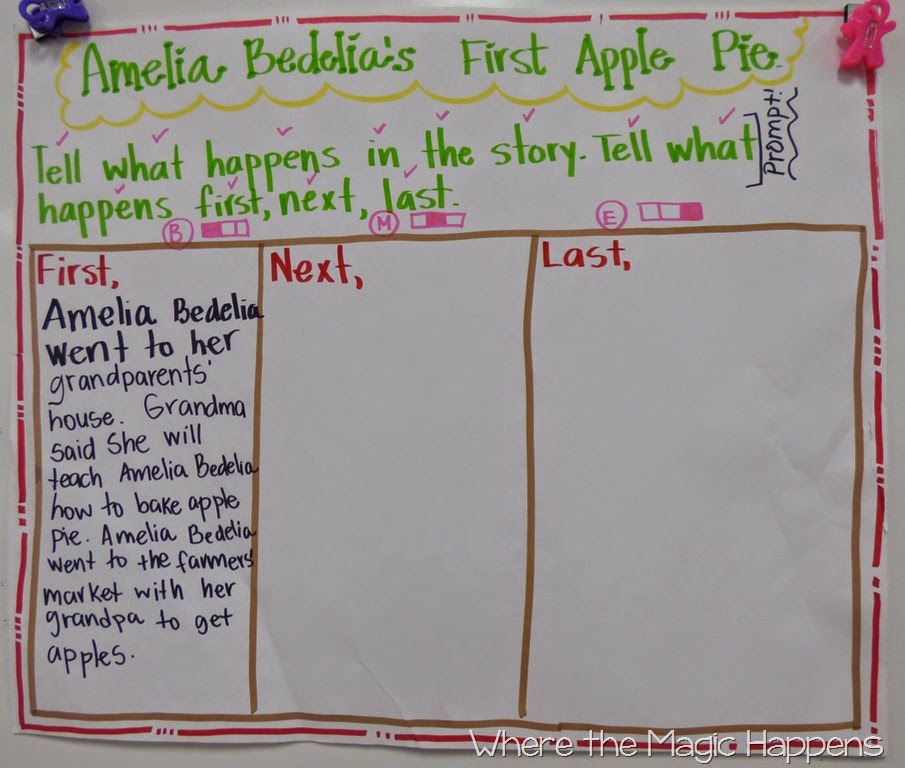 Amelia Bedelia's First Apple Pie.
Tell what happens in the story. Tell what
happens first, next, last.
Prompt!
B
M
E
First,
Amelia Bedelia
went to her
grandparents'
house. Grandma
said She will
teach Amelia Bedelia
how to bake apple
pie. Amelia Bedelia
went to the farmers
market with her
grandpa to get
apples.
Next,
Last,
Where the Magic Happens